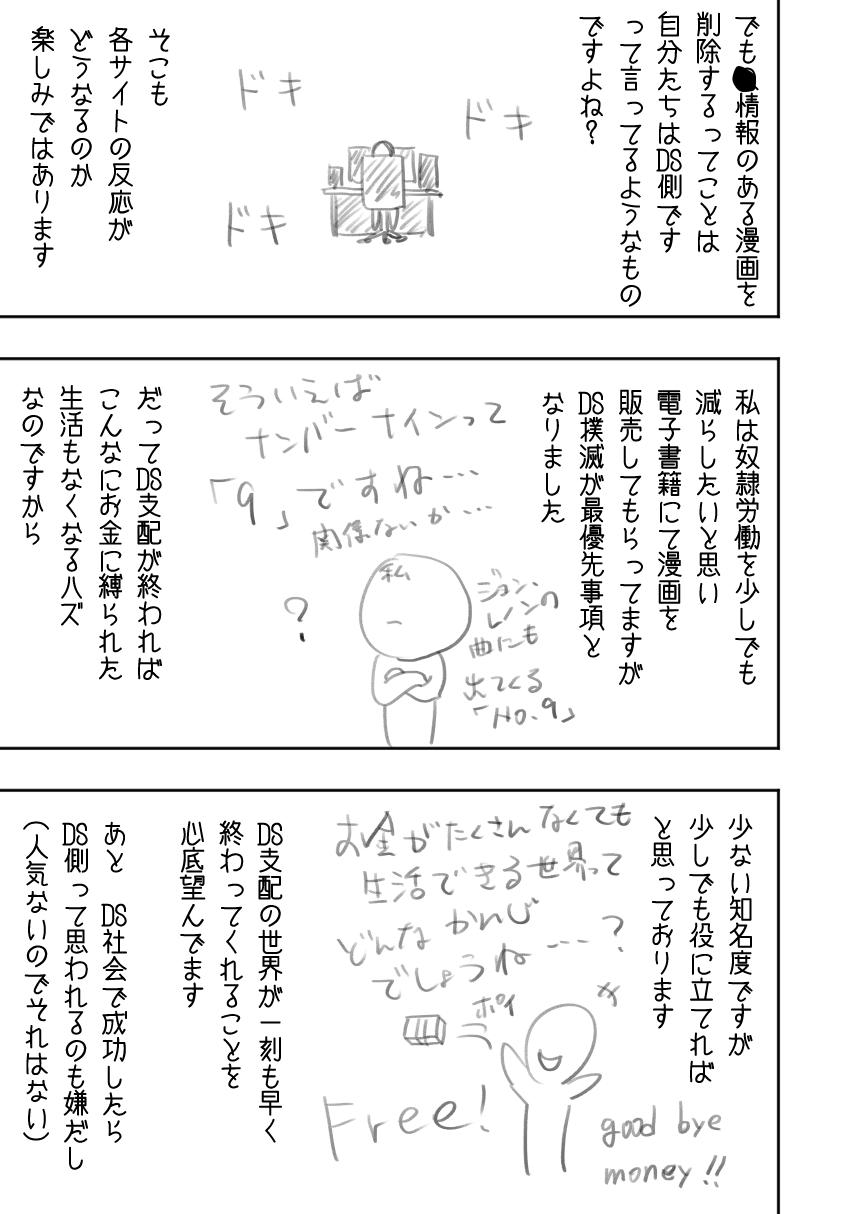 でも
情報のある漫画を
削除するってことは
自分たちはDS側です
って言ってるようなもの
ですよね?
ドキ
ドキ
ドキ
そこも
各サイトの反応が
どうなるのか
楽しみではあります
私は奴隷労働を少しでも
減らしたいと思い
電子書籍にて漫画を
販売してもらってますが
DS撲滅が最優先事項と
なりました
そういえば
ナンバーナインって
「9」ですね…
関係ないか…
ジョン、
レノンの
曲にも
出てくる
「No.9」
私
?
だってDS支配が終われば
こんなにお金に縛られた
生活もなくなるハズ
なのですから
少ない知名度ですが
少しでも役に立てれば
と思っております
お金がたくさんなくても
生活できる世界って
どんなかんじ
でしょうね…?
ポイ
Free!
good bye
money!!
DS支配の世界が一刻も早く
終わってくれることを
心底望んでます
あと DS社会で成功したら
DS側って思われるのも嫌だし
(人気ないのでそれはない)